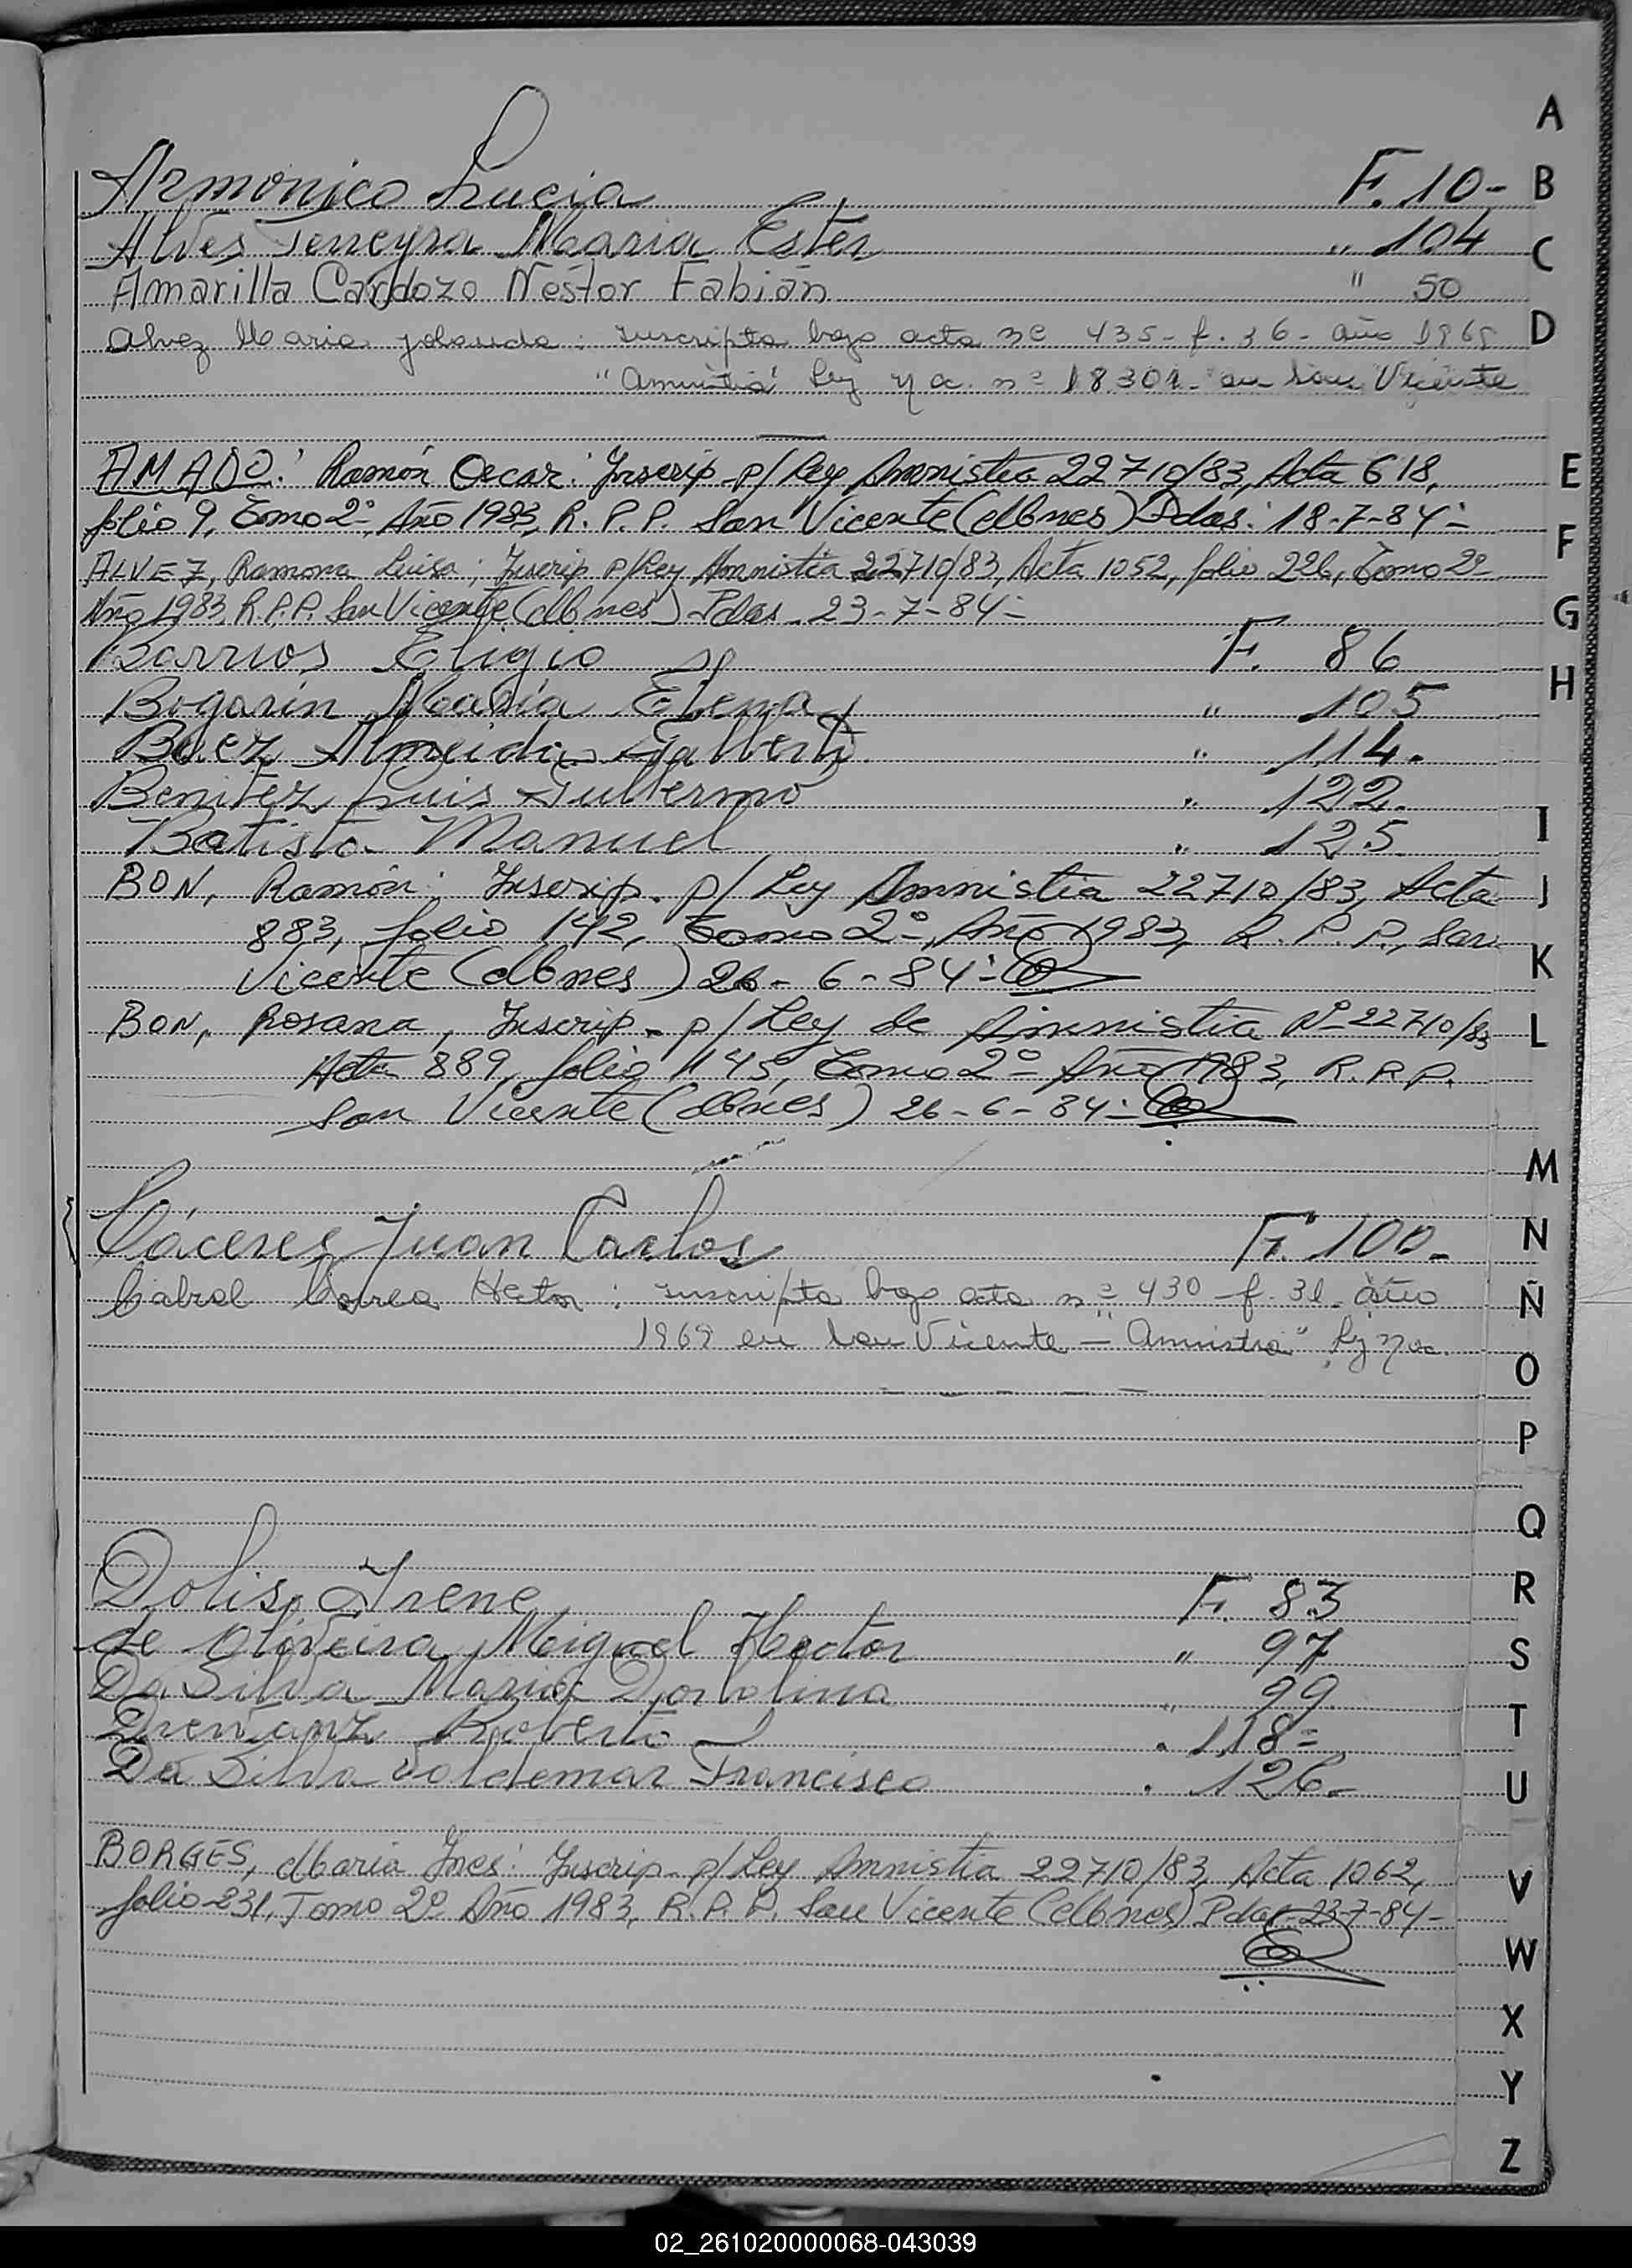 A
Armonico Lucia F. 10- B
Alves Ferreyra Maria Ester " 104 C
Amarilla Cardozo Néstor Fabián " 50
Alvez Maria Yolanda: inscripta bajo acta nº 435- f. 36- año 1969 D
"Amnistia" Ley nac. nº 18.301- en San Vicente
AMADO: Ramón Oscar: Inscrip. p/ Ley Amnistia 22710/83, Acta 618, E
folio 9, Tomo 2º, Año 1983, R. P. P. San Vicente (Mnes) Pdas: 18-7-84-
F
ALVEZ, Ramona Luisa; Inscrip p/Ley Amnistia 22710/83, Acta 1052, folio 226, Tomo 2º
Año 1983, R.P.P. San Vicente (Mnes) Pdas. 23-7-84- G
Barrios Eligio F. 86
Bogarin Maria Elena " 105 H
Baez Almeida " 114.
Benitez Luis Guillermo " 122.
Batista Manuel " 125 I
BON, Ramón: Inscrip. p/ Ley Amnistia 22710/83, Acta J
883, folio 142, Tomo 2º, Año 1983, R. P. P., San
Vicente (Mnes) 26- 6- 84- K
BON, Rosana, Inscrip. p/ Ley de Amnistia Nº 22710/83 L
Acta 889, folio 145, Tomo 2º Año 1983, R.P.P.
San Vicente (Mnes) 26-6-84-
M
Cáceres Juan Carlos F. 100- N
Cabral Correa Hector: inscripta bajo acta nº 430 f. 31- año Ñ
1969 en San Vicente - "Amnistia" Ley nac.
O
P
Q
Dolis Irene F. 83 R
de Oliveira Miguel Hector " 97 S
Da Silva Maria " 99
Roberto " 118= T
Da Silva Valdemar Francisco " 126- U
BORGES, Maria Ines: Inscrip. p/ Ley Amnistia 22710/83, Acta 1062, V
folio 231, Tomo 2º Año 1983, R. P. P. San Vicente (Mnes) Pdas- 23-7-84-
W
X
Y
Z
02_261020000068-043039